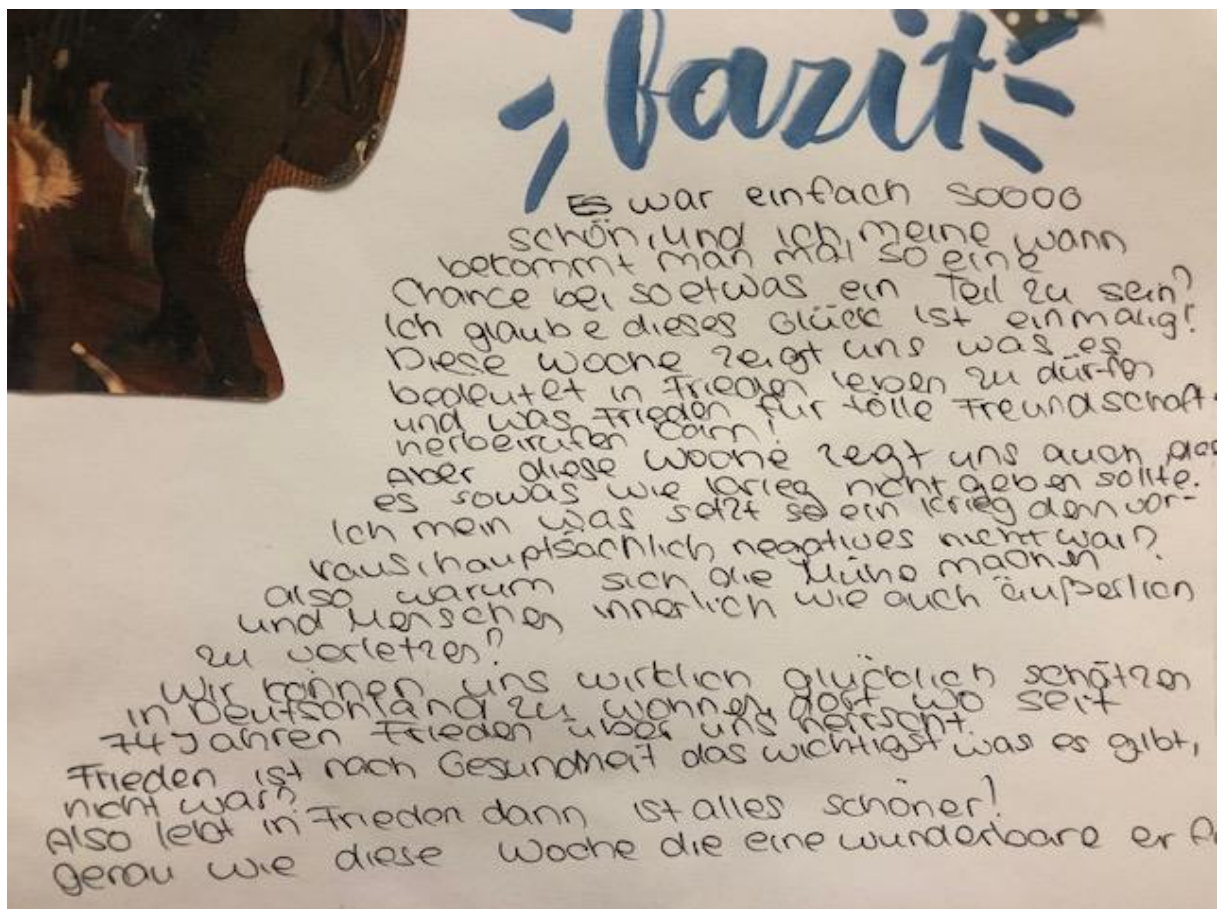 fazit
Es war einfach soooo
schön, und ich meine wann
bekommt man mal so eine
Chance bei so etwas ein Teil zu sein?
Ich glaube dieses Glück ist einmalig!
Diese Woche zeigt uns was es
bedeutet in Frieden leben zu dürfen
und was Frieden für tolle Freundschaft-
herbeirufen cann!
Aber diese Woche zegt uns auch das
es sowas wie krieg nicht geben sollte.
Ich mein was setzt so ein krieg denn vor-
raus, hauptsächlich negatives nicht war?
also warum sich die Mühe machen
und Menschen innerlich wie auch äußerlich
zu verletzen?
Wir können uns wirklich glücklich schätzen
in Deutschland zu wohnen, dort wo seit
74 Jahren Frieden über uns herrscht.
Frieden ist nach Gesundheit das wichtigst was es gibt,
nicht war?
Also lebt in Frieden dann ist alles schöner!
genau wie diese Woche die eine wunderbare